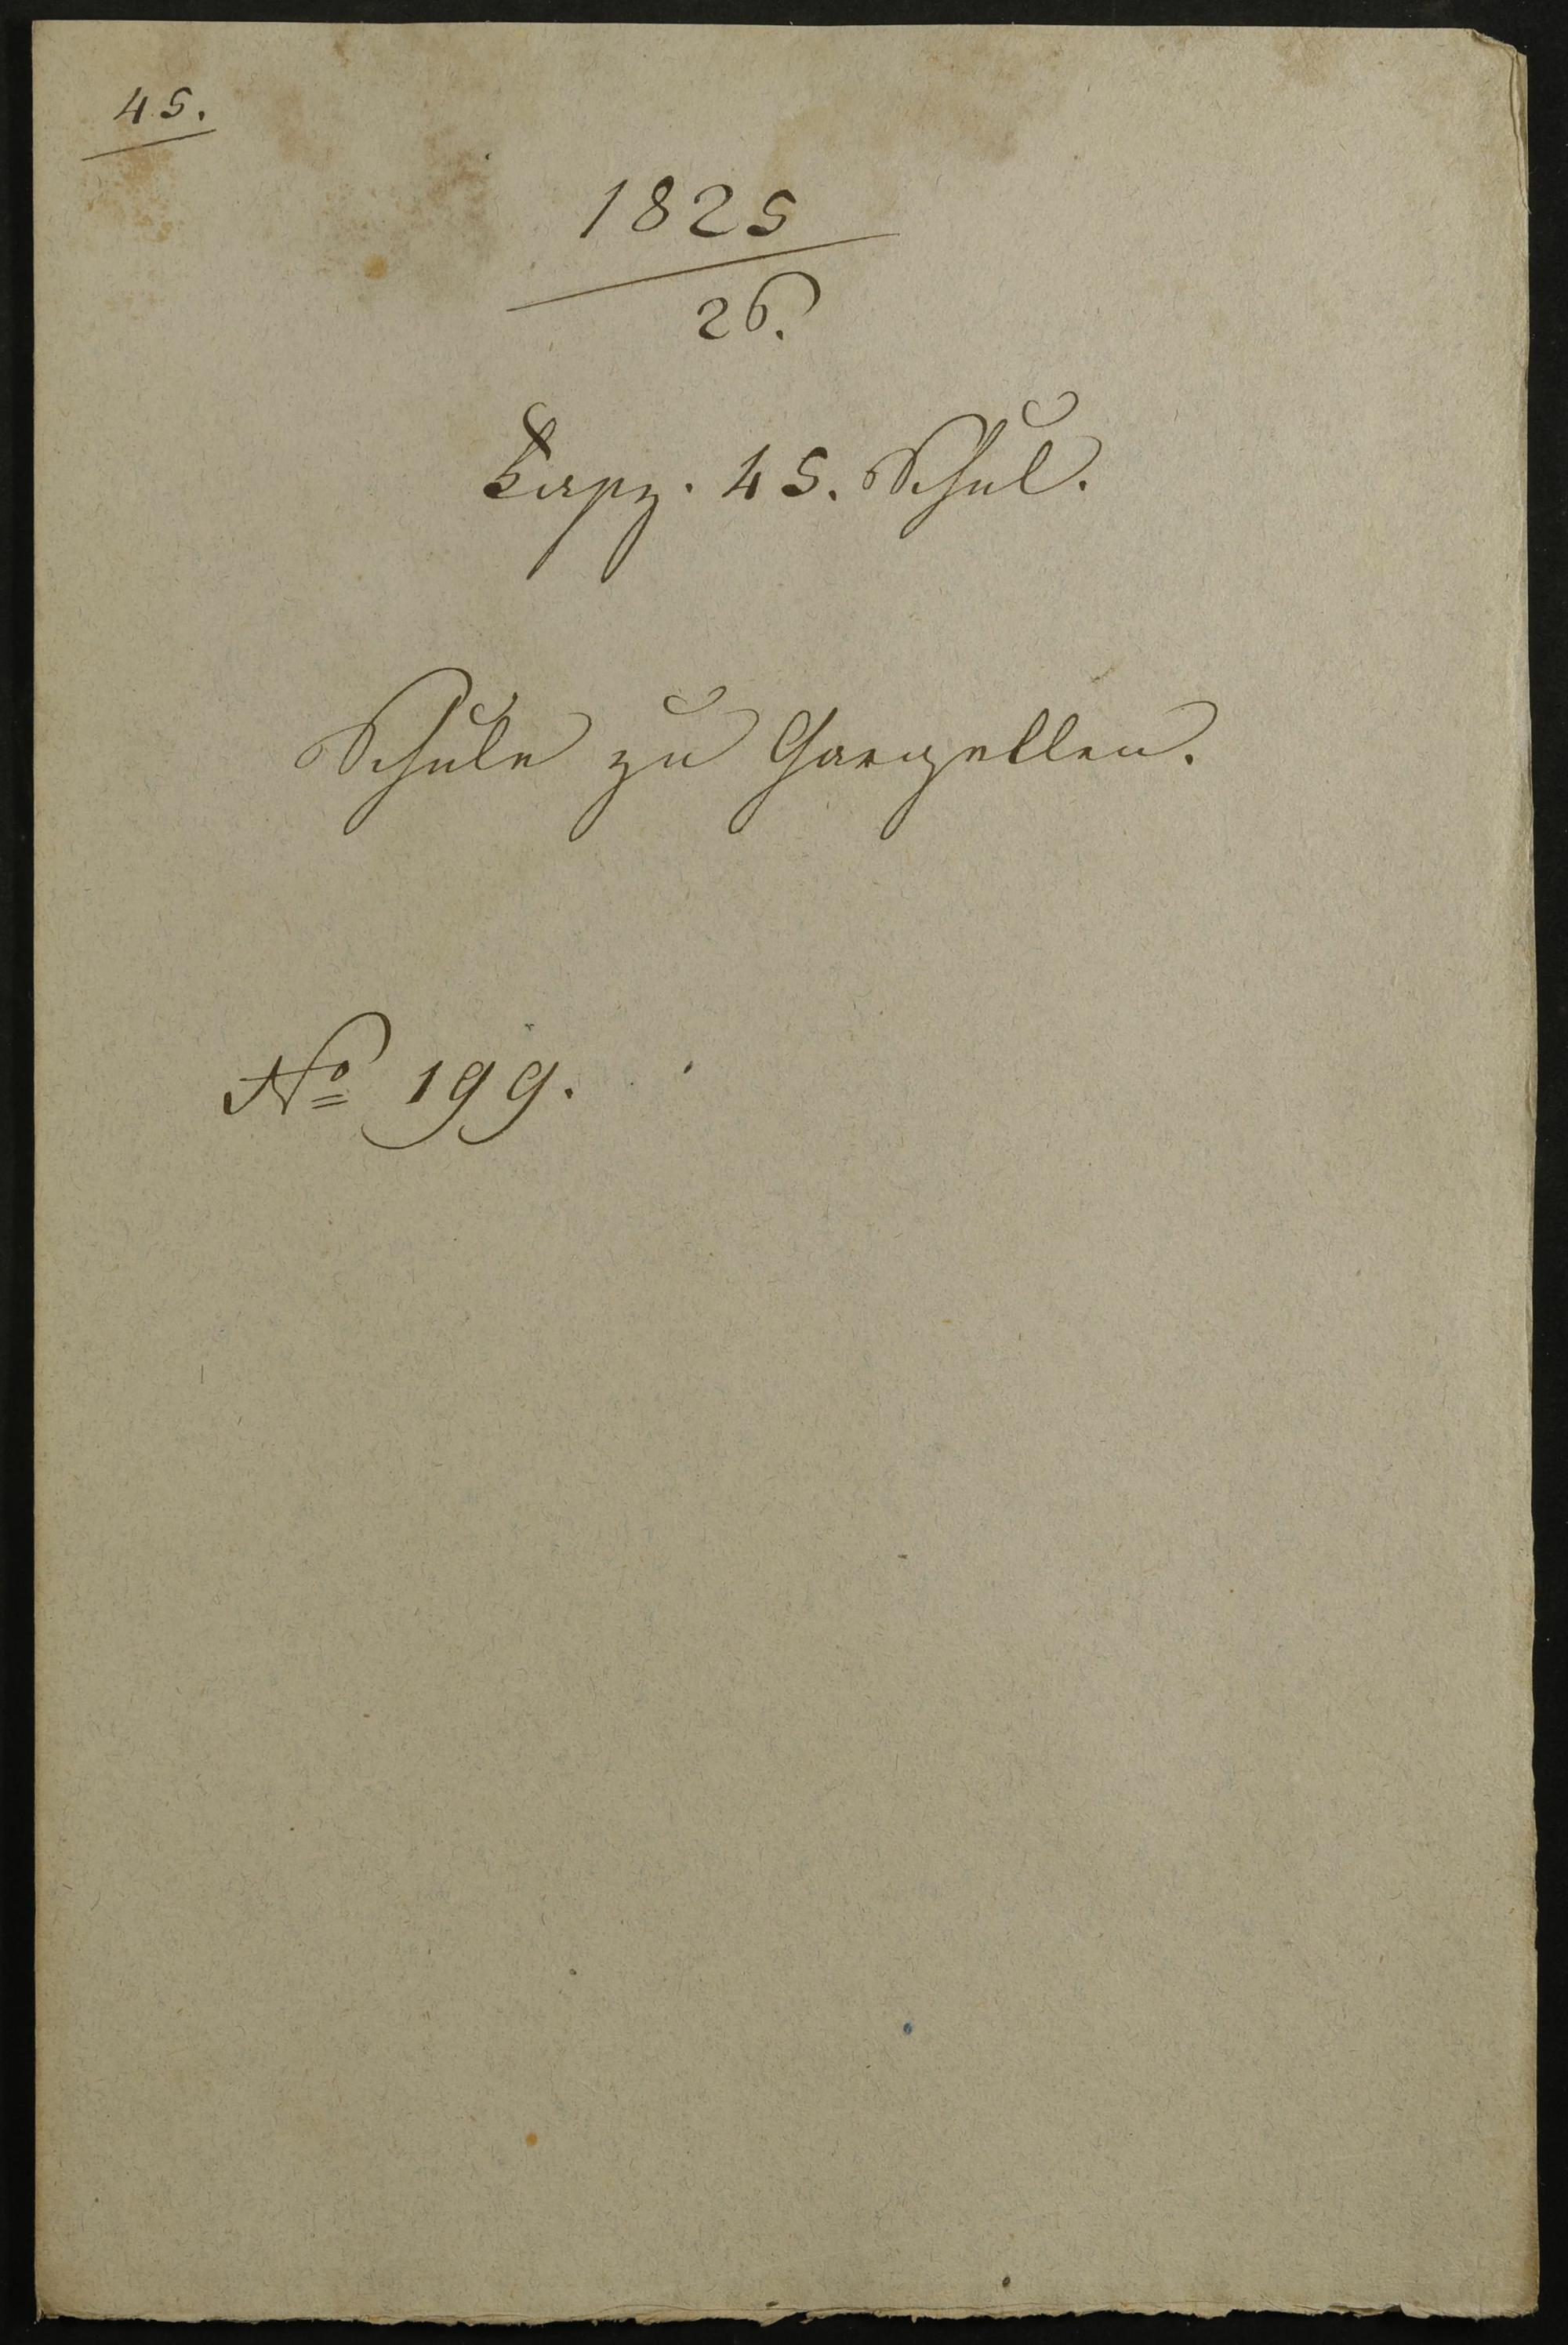 45.
1825
26.
Fasz. 45. Schul.
Schule zu Gargellen.
No 199.